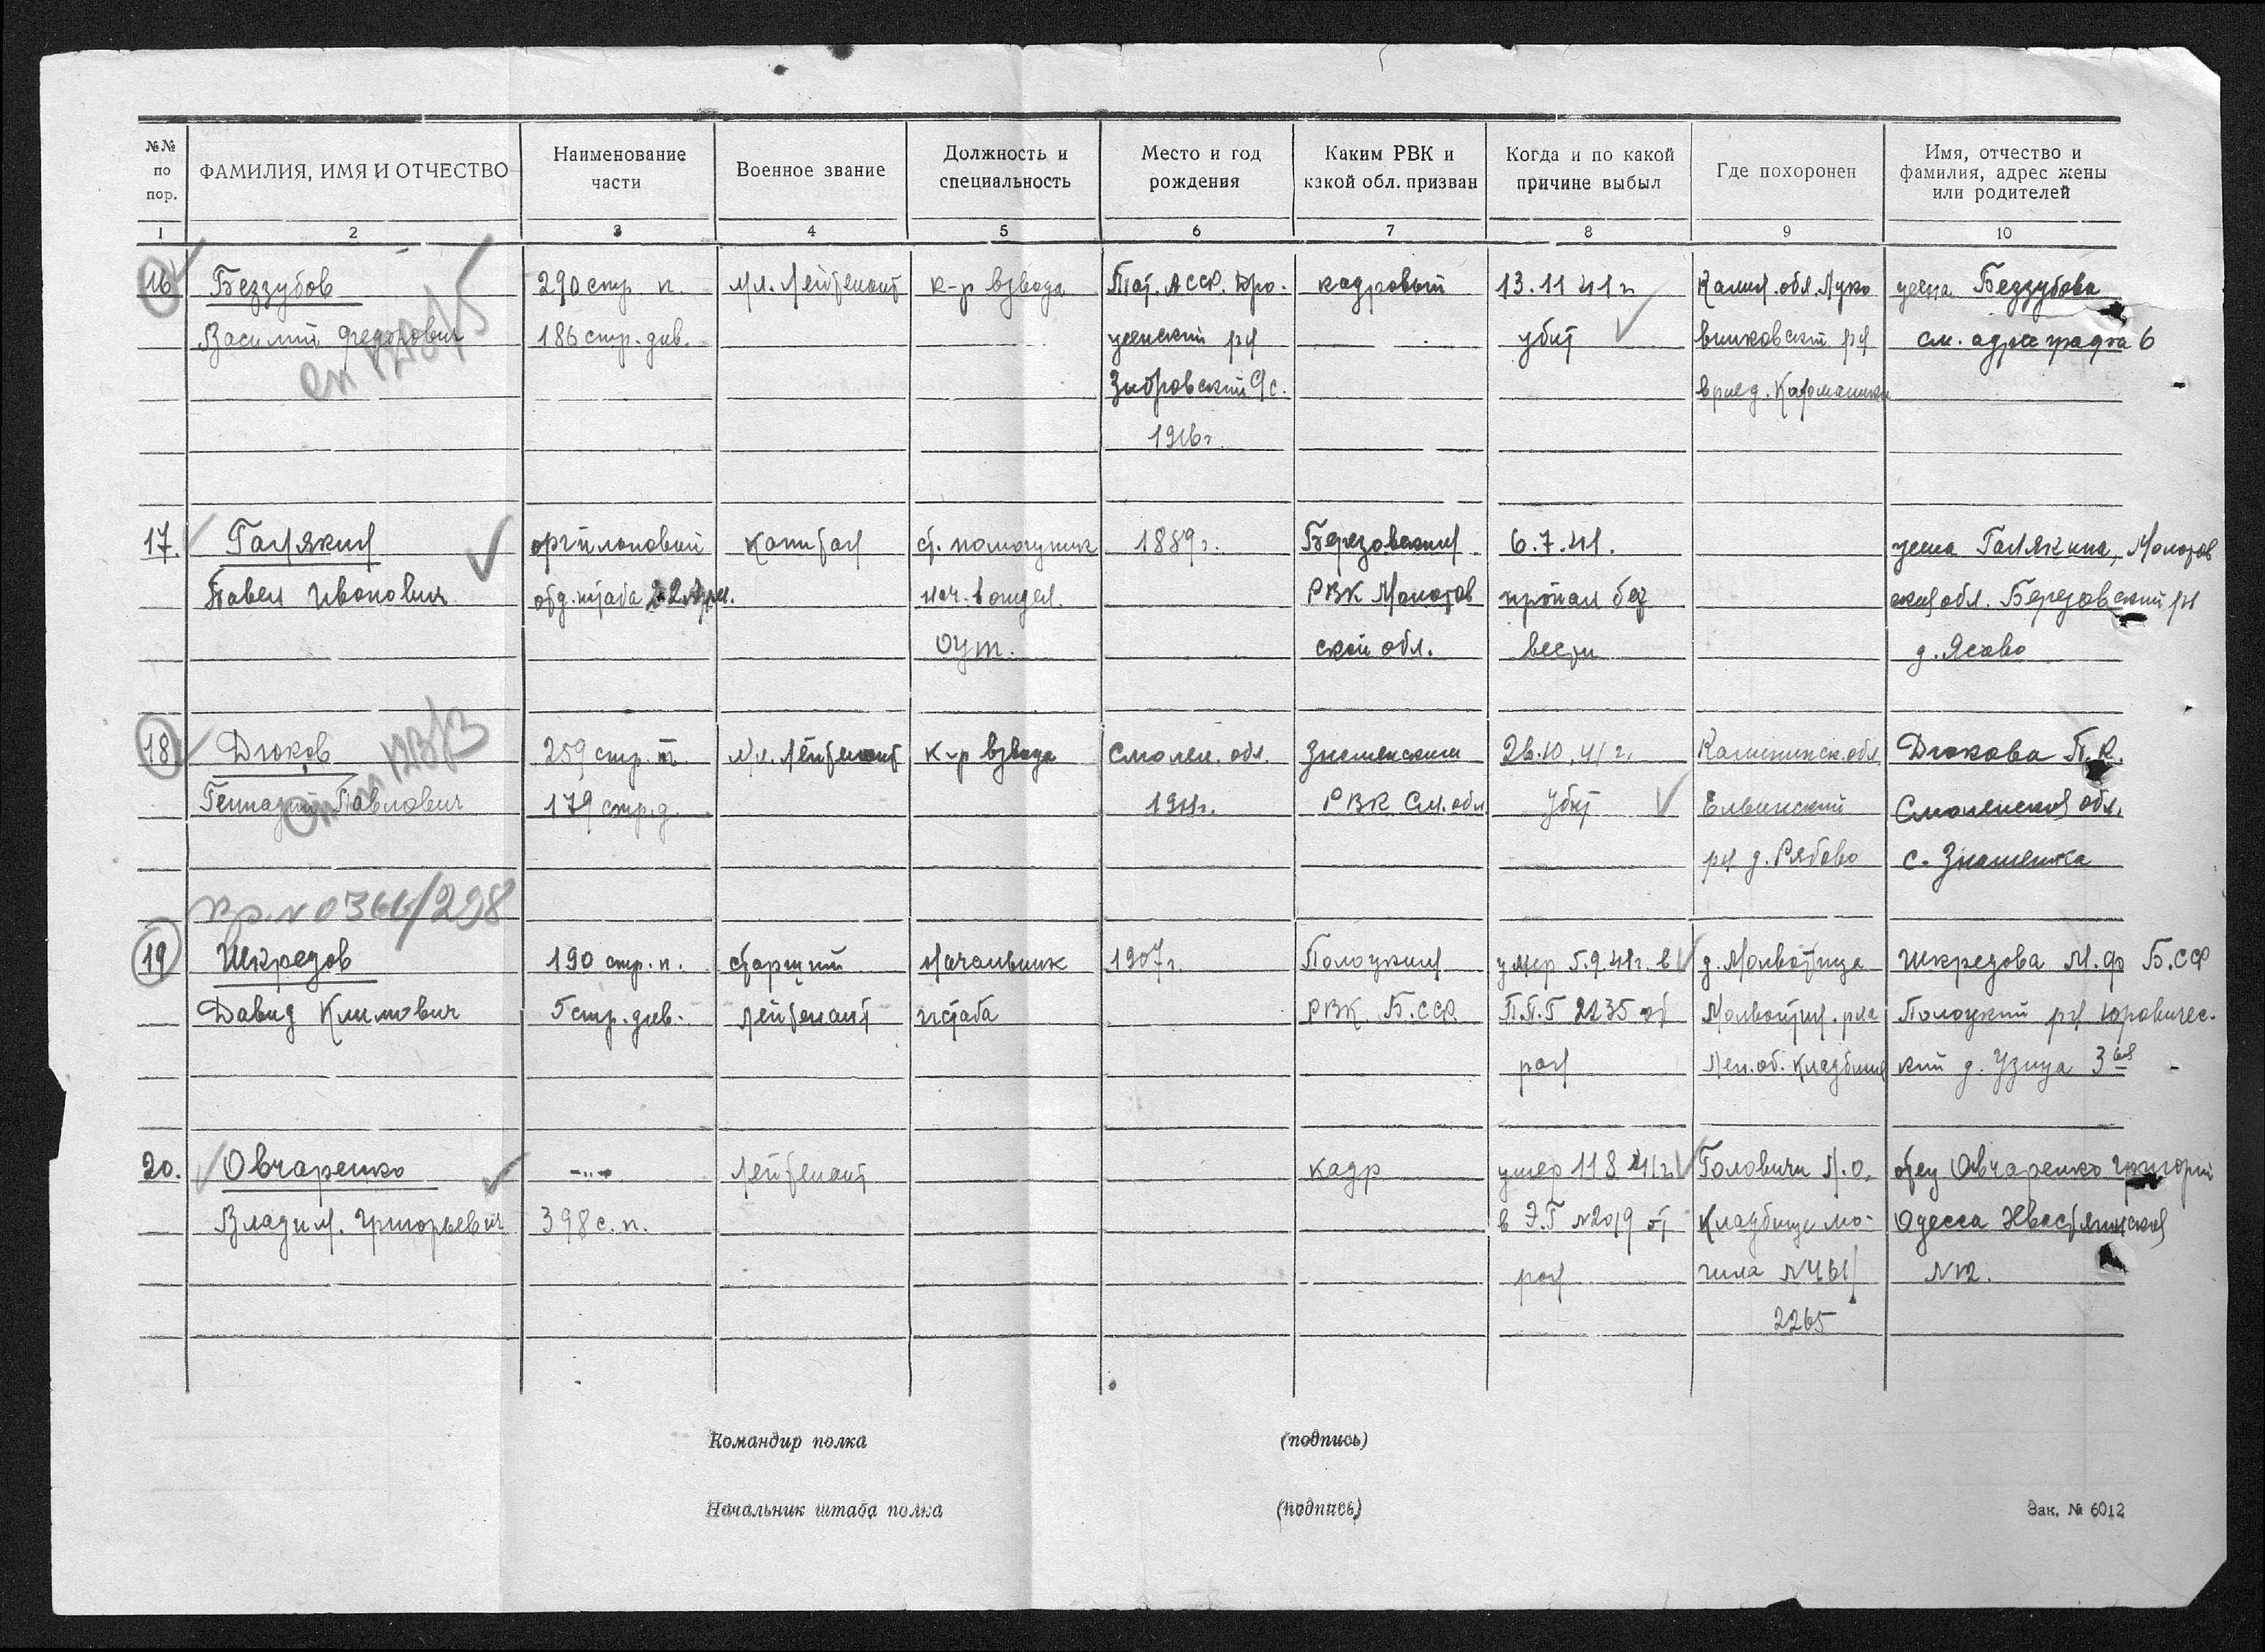 №№ по пор.
ФАМИЛИЯ, ИМЯ И ОТЧЕСТВО
Наименование части
Военное звание
Должность и специальность
Место и год рождения
Каким РВК и какой обл. призван
Когда и по какой причине выбыл
Где похоронен
Имя, отчество и фамилия, адрес жены или родителей
1 2 3 4 5 6 7 8 9 10
16 Беззубов 290 стр. п. мл. лейтенант к-р взвода Тат. АССР. кадровый 13.11 41 г Калин. обл. Луко жена Беззубова
Василий Федорович 186 стр. див. р-н убит вниковский р-н см. адрес графа 6
с/с. в р-не д.
1916 г.
17. Галякин капитан ст. помощник 1889 г. Березовским 6.7.41. жена Галякина, Молотов
Павел Иванович отд. штаба 22 Арм. нач. 1 отдел. РВК Молотов пропал без ская обл. Березовский р-н
ской обл. вести д. Ясово
18. Дюков 259 стр. п. мл. лейтенант к-р взвода Смолен. обл. Знаменским 26.10.41 г. Калининск. обл Дюкова П.
Геннадий Павлович 179 стр. д. РВК См. обл убит Смоленская обл.
р-н д. Рябово с. Знаменка
пр. № 0366/298
19 Шкредов 190 стр. п. старший начальник 1907 г. Полоцким умер 5.9.41 г. в д. Молвотица Шкредова М. Ф Б.ССР
Давид Климович 5 стр. див. лейтенант штаба РВК Б.ССР П.П.Г 2235 от Молвотиц. р-на Полоцкий р-н Юровичес-
ран Лен. об. кладбище кий д. Узница 3
20. Овчаренко -"- лейтенант кадр умер 11 8 41 г. Головичи Л.О. отец Овчаренко Григорий
Владим. Григорьевич 398 с. п. в Э.Г №2019 от кладбище мо- Одесса
ран гила №461/ №12.
2265
Командир полка (подпись)
Начальник штаба полка (подпись)
Зак. № 6012